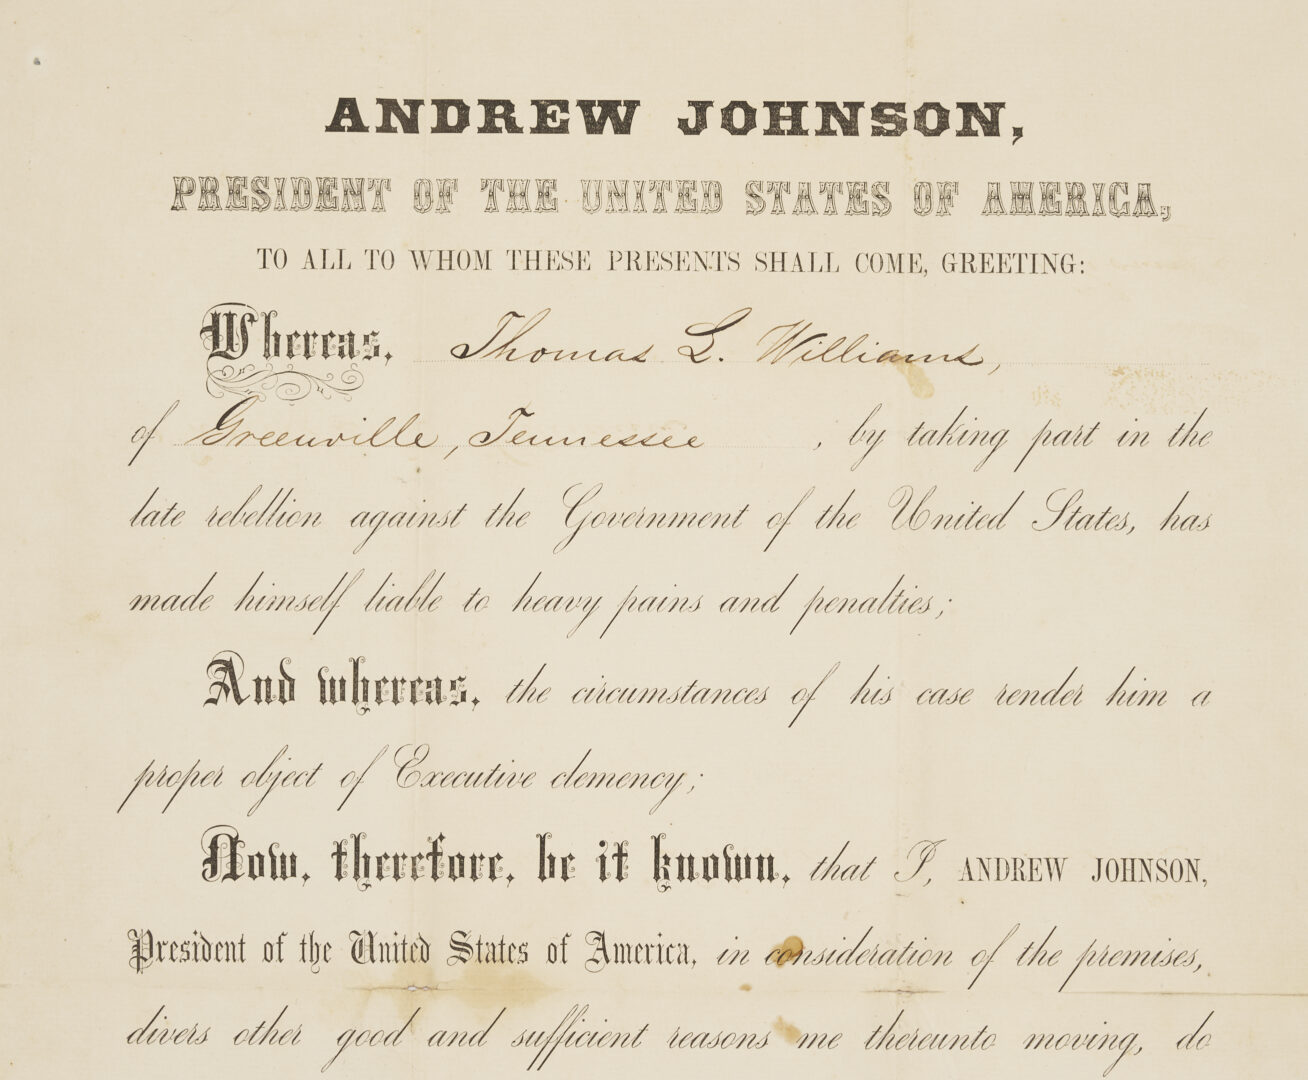 ANDREW JOHNSON,
PRESIDENT OF THE UNITED STATES OF AMERICA,
TO ALL TO WHOM THESE PRESENTS SHALL COME, GREETING:
Whereas, Thomas L. Williams,
of Greenville, Tennessee , by taking part in the
late rebellion against the Government of the United States, has
made himself liable to heavy pains and penalties;
And whereas, the circumstances of his case render him a
proper object of Executive clemency;
Now, therefore, be it known, that I, ANDREW JOHNSON,
President of the United States of America, in consideration of the premises,
divers other good and sufficient reasons me thereunto moving, do